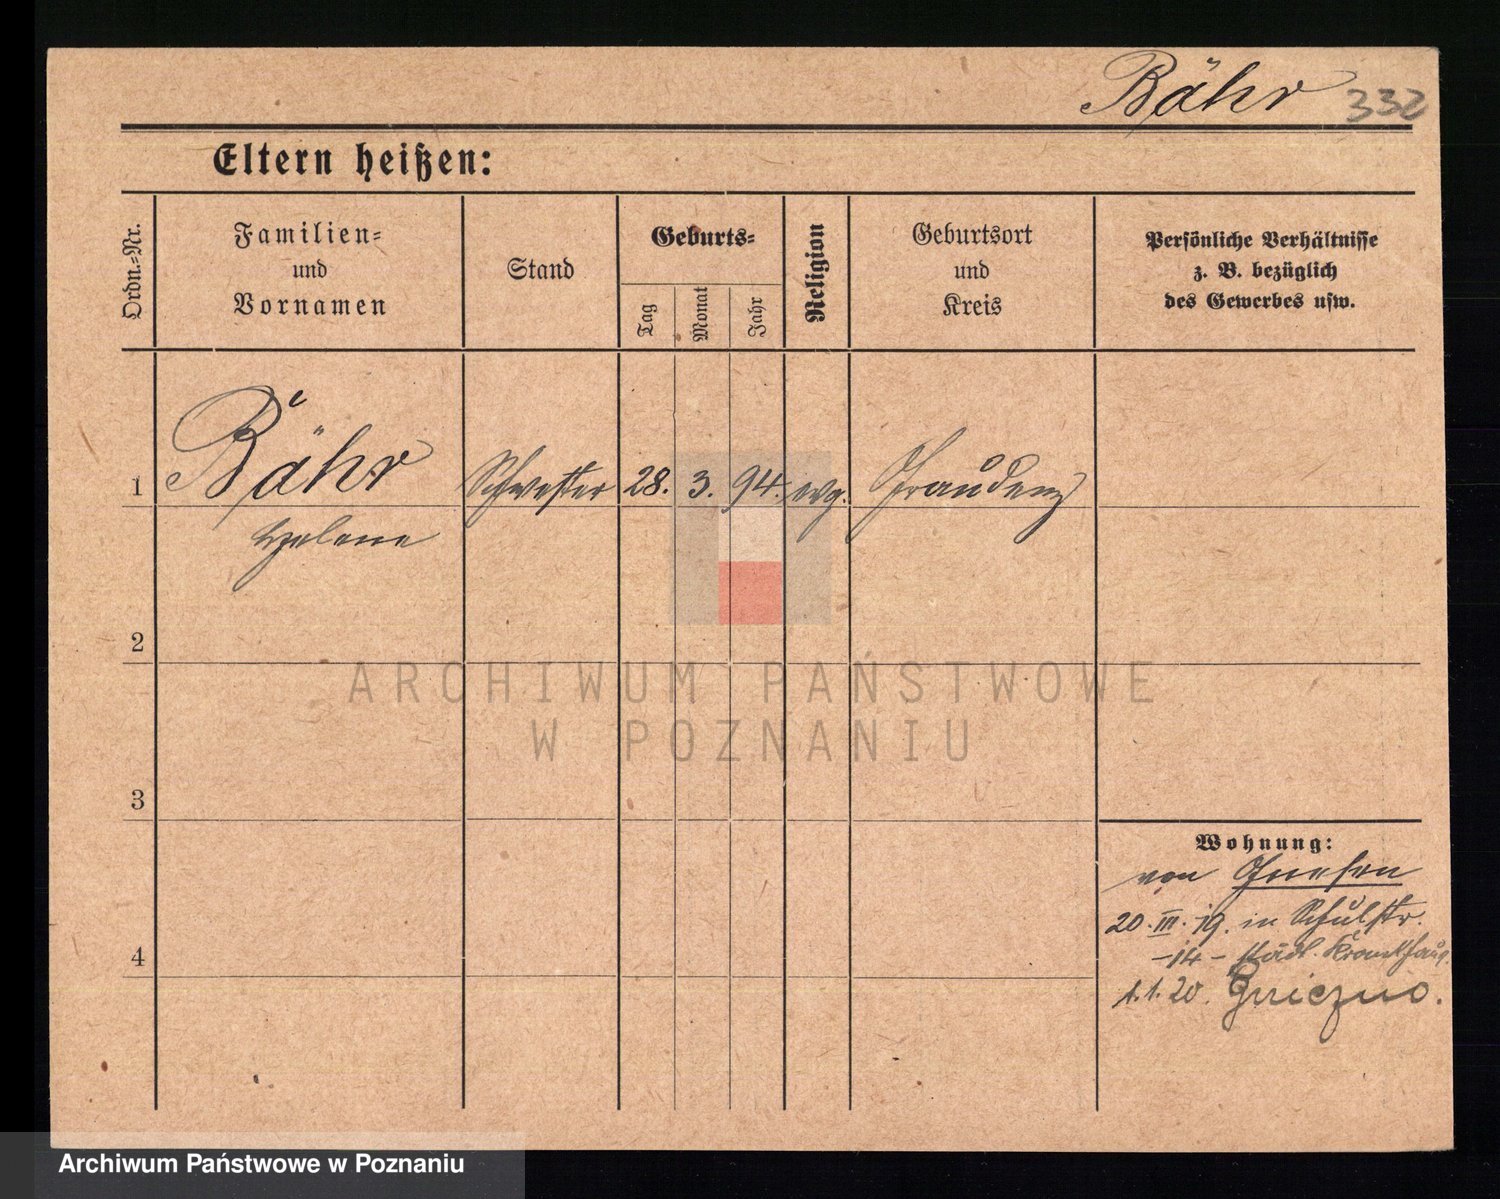 Bähr 332
Eltern heißen:
Ordn.=Nr.
Familien=
und
Vornamen
Stand
Geburts=
Tag
Monat
Jahr
Religion
Geburtsort
und
Kreis
Persönliche Verhältnisse
z. B. bezüglich
des Gewerbes usw.
1 Bähr Schwester 28. 3. 94. evg. Graudenz
Helene
2
3
4
Wohnung:
von Gnesen
20. III. 19. in Schulstr.
-14- städt. Krankhaus.
1.1.20. Gniezno.
ARCHIWUM PAŃSTWOWE
W POZNANIU
Archiwum Państwowe w Poznaniu